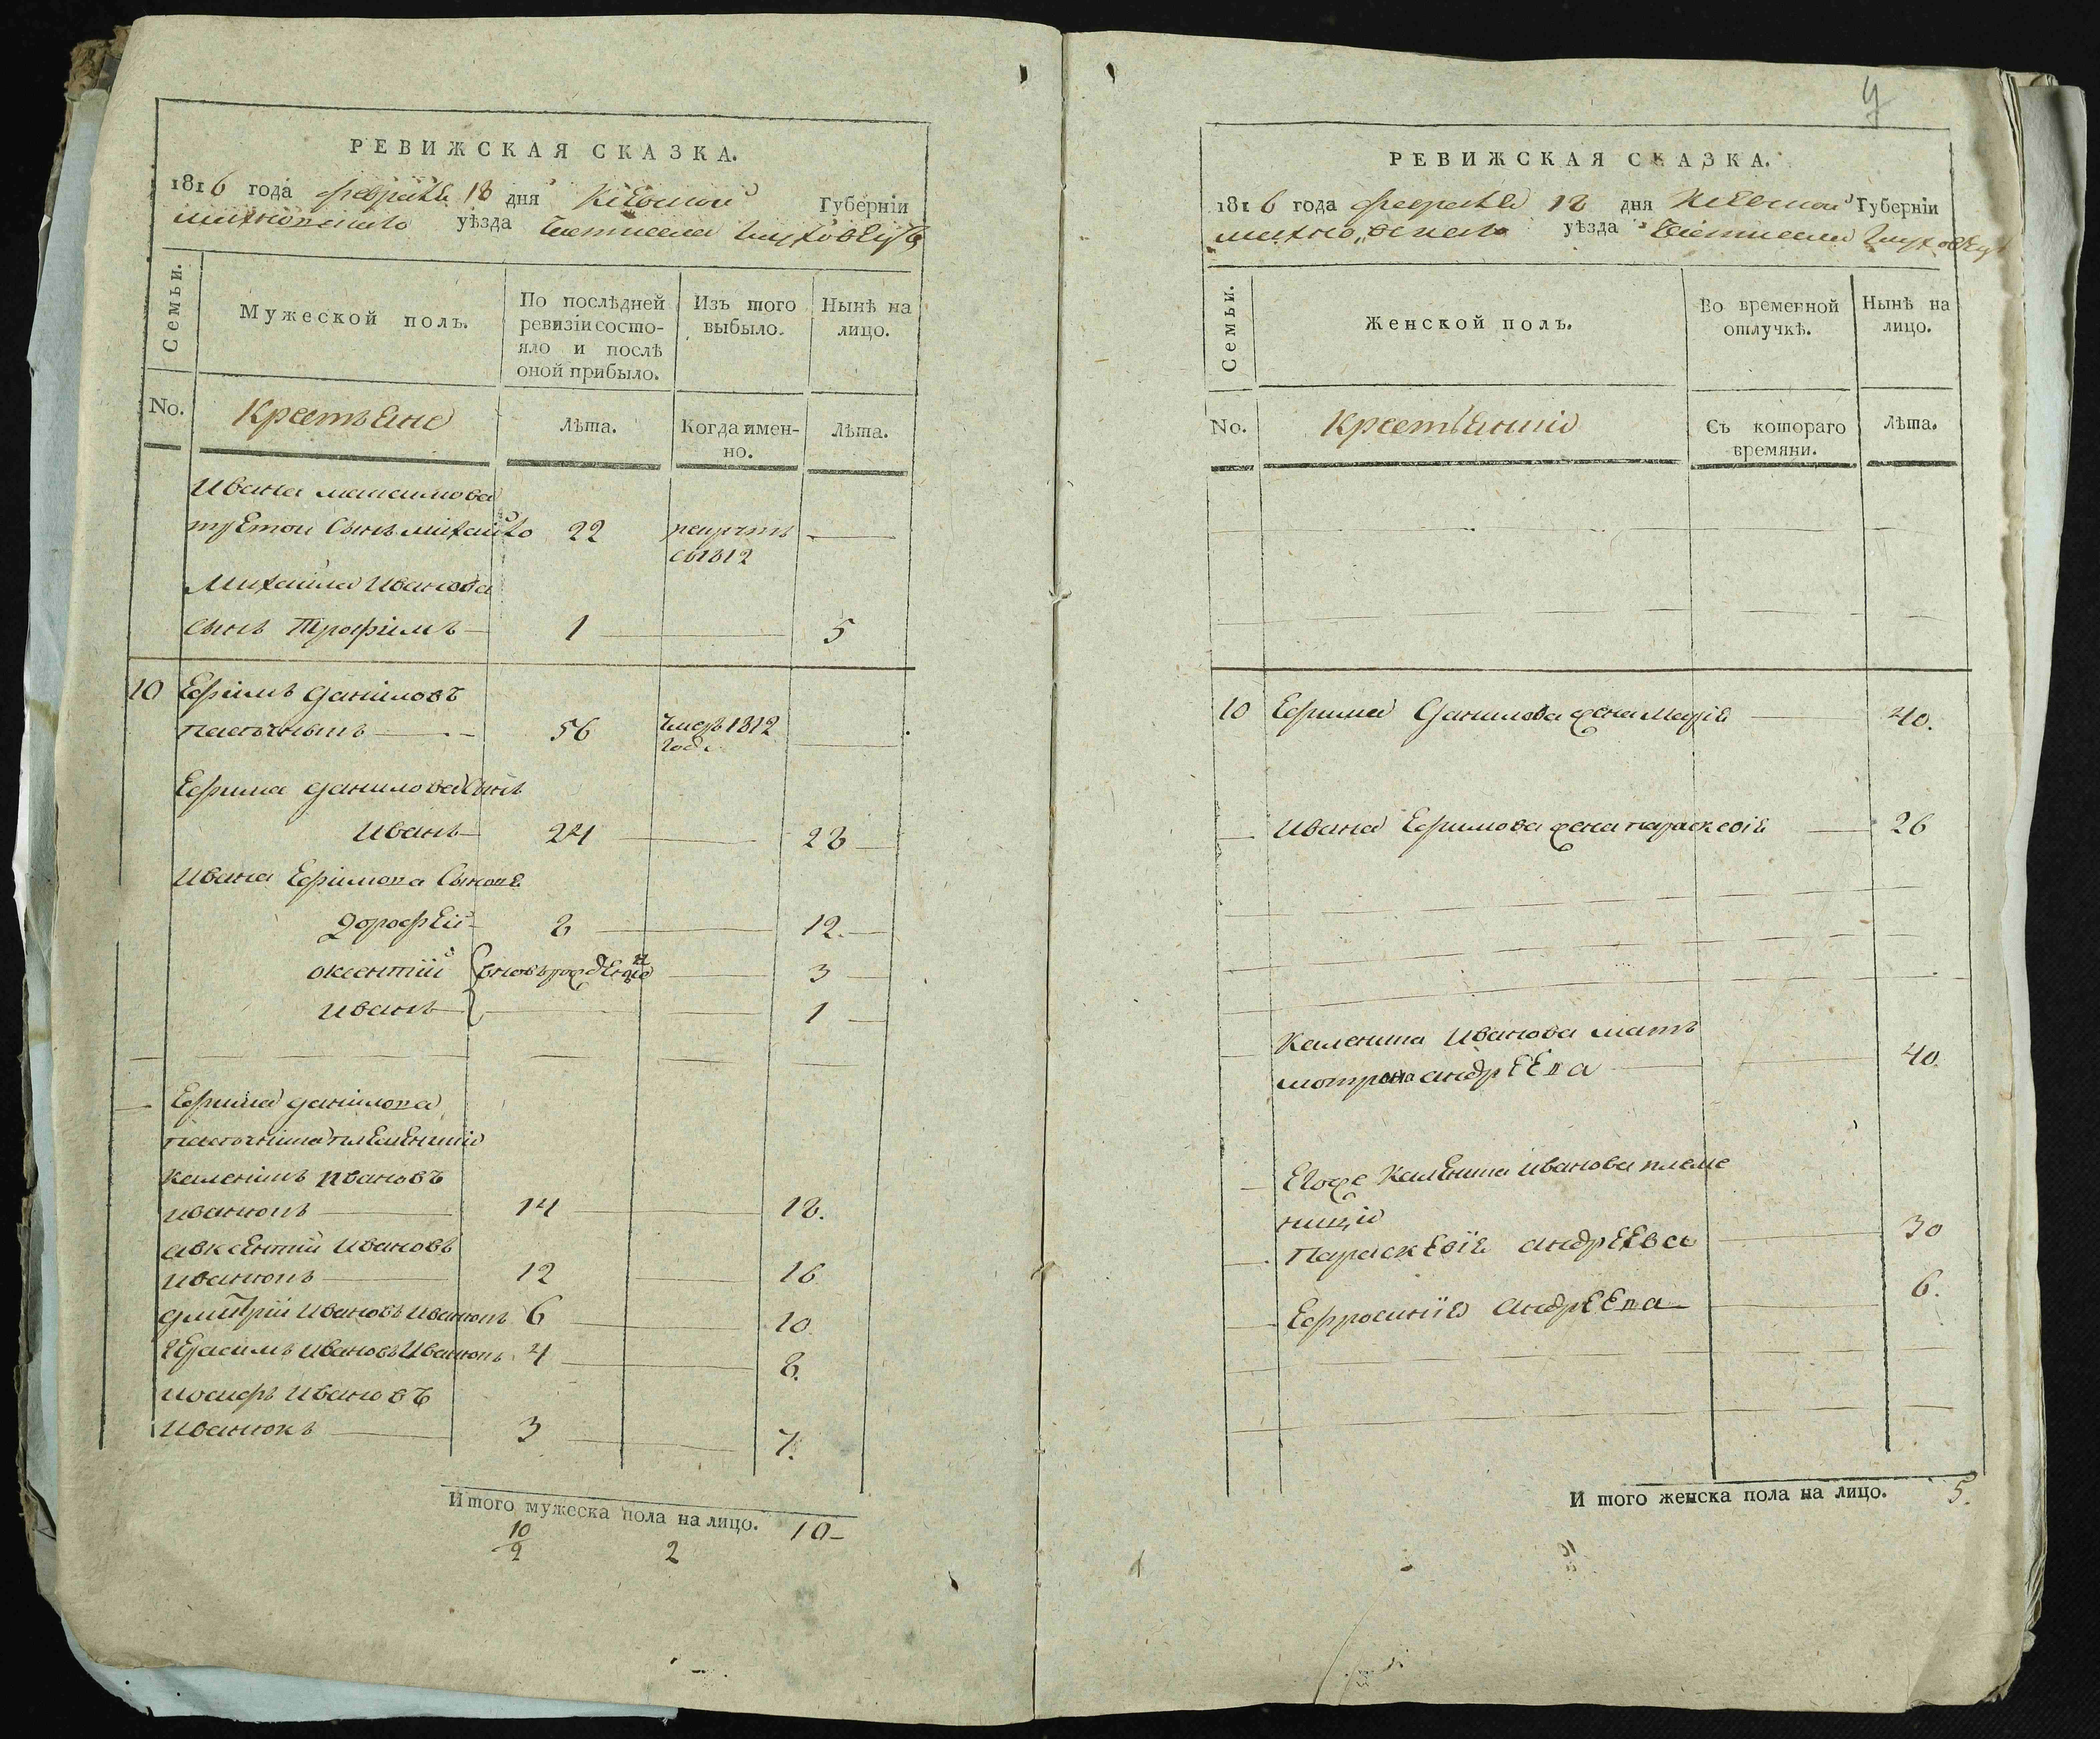 РЕВИЖСКАЯ СКАЗКА.
1816 года февраля 18 дня Киевской Губернiи
махновскаго уѣзда части села Глуховецъ
Семьи.
Мужеской полъ.
По послѣдней ревизiи состояло и послѣ оной прибыло.
Изъ того выбыло.
Нынѣ на лицо.
No.
Крестьяне
Лѣта.
Когда имен-
но.
Лѣта.
Ивана максимова
третой Сынъ михайло 22 рекрутъ
въ 1812
Михайла Иванова
Сынъ Трофимъ 1 5
10 Ефiмъ данiловъ
пасѣчникъ 56 умеръ 1812
года
Ефима данилова Сынъ
Иванъ 24 28
Ивана Ефiмова Сынове
дорофѣй 8 12.
оксентiй вновь рожденые 3
иванъ 1
Ефима данiлова
пасѣчника племенники
каленiкъ ивановъ
иванюкъ 14 18.
авксентiй ивановъ
иванюкъ 12 16
дмитрiй ивановъ иванюкъ 6 10.
Герасимъ ивановъ Иванюкъ 4 8.
иосифъ ивановъ
иванюкъ 3 7.
Итого мужеска пола на лицо. 10
10
2
2
РЕВИЖСКАЯ СКАЗКА.
1816 года февраля 18 дня Киевской Губернiи
махновскаго уѣзда части села Глуховецъ
Семьи.
Женской полъ.
Во временной
отлучкѣ.
Нынѣ на
лицо.
No.
Крестьянки
Съ котораго
времяни.
Лѣта.
10 Ефима Данилова жена Марiя 40.
Ивана Ефимова жена параскевiя 26
Каленика Иванова мать
мотрона андрѣева 40.
Егоже Каленика иванова племе
ницы
Параскевiя андрѣева 30
Ефросинiя андрѣева 6.
И того женска пола на лицо. 5.